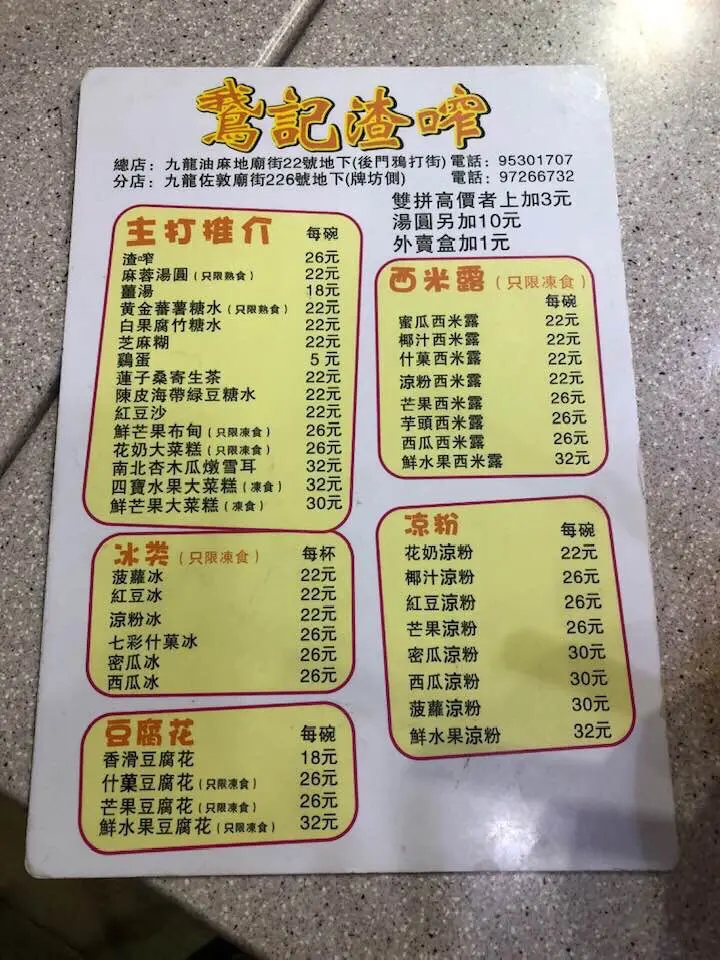 鵝記渣咋
總店：九龍油麻地廟街22號地下(後門鴉打街) 電話：95301707
分店：九龍佐敦廟街226號地下(牌坊側) 電話：97266732
雙拼高價者上加3元
湯圓另加10元
外賣盒加1元
主打推介 每碗
渣咋 26元
麻蓉湯圓（只限熟食） 22元
薑湯 18元
黃金蕃薯糖水（只限熟食） 22元
白果腐竹糖水 22元
芝麻糊 22元
鷄蛋 5元
蓮子桑寄生茶 22元
陳皮海帶緑豆糖水 22元
紅豆沙 22元
鮮芒果布甸（只限凍食） 26元
花奶大菜糕（只限凍食） 26元
南北杏木瓜燉雪耳 32元
四寶水果大菜糕（凍食） 32元
鮮芒果大菜糕（凍食） 30元
冰类（只限凍食） 每杯
菠蘿冰 22元
紅豆冰 22元
涼粉冰 22元
七彩什菓冰 26元
密瓜冰 26元
西瓜冰 26元
豆腐花 每碗
香滑豆腐花 18元
什菓豆腐花（只限凍食） 26元
芒果豆腐花（只限凍食） 26元
鮮水果豆腐花（只限凍食） 32元
西米露（只限凍食）
每碗
蜜瓜西米露 22元
椰汁西米露 22元
什菓西米露 22元
涼粉西米露 22元
芒果西米露 26元
芋頭西米露 26元
西瓜西米露 26元
鮮水果西米露 32元
凉粉 每碗
花奶涼粉 22元
椰汁涼粉 26元
紅豆涼粉 26元
芒果涼粉 26元
密瓜涼粉 30元
西瓜涼粉 30元
菠蘿涼粉 30元
鮮水果涼粉 32元